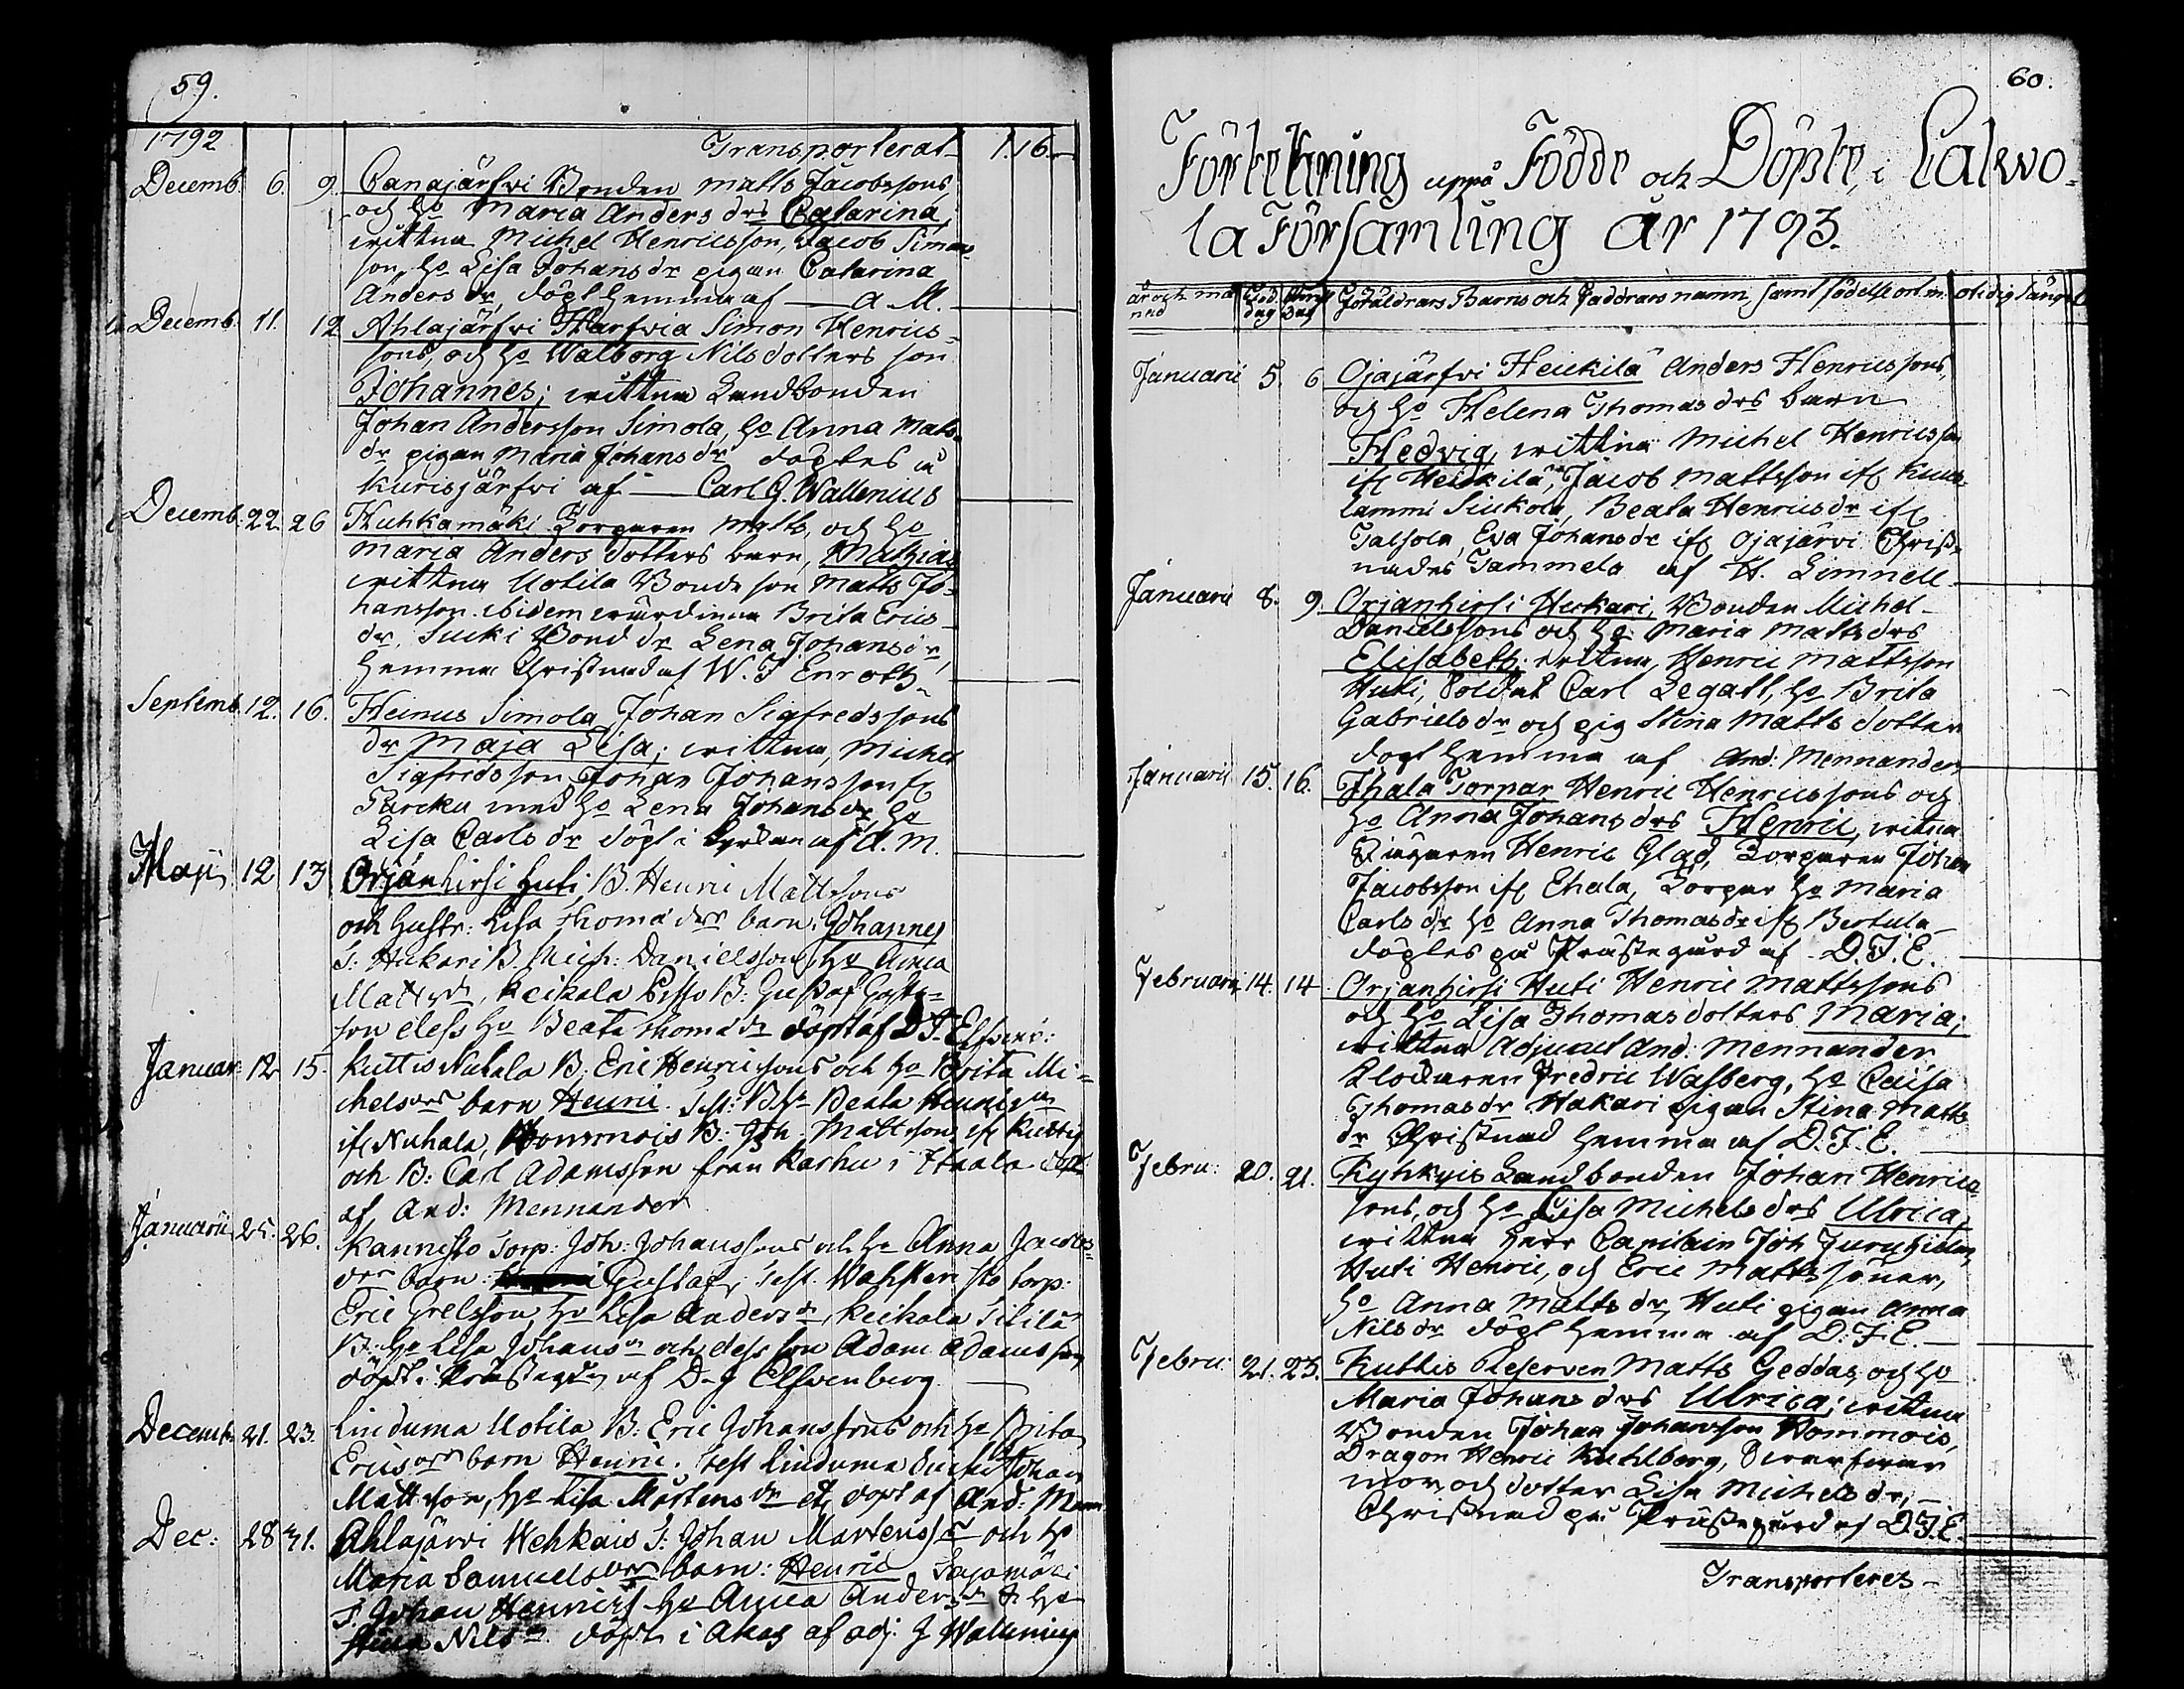 59.
1792 Transporterat 1. 16.
Decemb. 6. 9. Canajärfwi Bonden Matts Jacobssons
och ho Maria Anders drs Catarina;
wittna Michel Henricsson, Jacob Simons¬
son, ho Lisa Johans dr pigan Catarina
Anders dr, döpt hemma af — A M.
Decemb. 11. 12 Ahlajärfwi Harfwia Simon Henrics¬
sons, och ho Walborg Nilsdotters son
Johannes; wittna Landbonden
Johan Andersson Simola, ho Anna Mats¬
dr pigan Maria Johans dr döptes i
Kurisjärfwi af — Carl G. Wallenius
Decemb. 22. 26 Huhkamäki Torparen Matts, och ho
Maria Anders dotters barn, Mathias
wittna Uotila Bonde son Matts Jo¬
hansson ibidem wärdinna Brita Erics
dr, Sucki Bond dr Lena Johans dr,
hemma Christnad af W. J Enroth.
Septemb. 12. 16. Heinus Simola Johan Sigfredssons
dr Maja Lisa; wittna, Michel
Sigfridsson, Johan Johansson
med ho Lena Johans dr, ho
Lisa Carls dr döpt i af A. M.
Maji 12 13 Orjänhirsi Huti, B. Henric Mattssons
och hustr: Lisa Thomæ drs barn: Johannes
T: Hakari B. Mich: Danielsson, ho Anna
Matts dr, Keikala B: Gustaf Gustafs=
son dess ho Beata Thomæ dr döpt af D J. Elfvenb:
Januar: 12 15. Kuttis Nuhala B: Eric Henricssons och ho Brita Mi=
chels drs barn Henric. Test: B. ho Beata Henrics dr
ifr Nuhala, Pommois B: Joh: Mattsson, ifr Kuttis
och B: Carl Adamsson från Karhu i Ittaala döpt
af, And: Mennander
Januarii 25. 26. Kannisto Torp: Joh: Johanssons och ho Anna Jacobs
drs barn: Gustaf, Test. Torp:
Eric Grelsson, ho Lisa Anders dr, Keikala Sitilä
B. ho Lisa Johans dr och dess son Adam Adamsson
döpt i Präste af D. J Elfvenberg
Decemb: 21. 23. Linduma Uotila B. Eric Johanssons och ho Brita
Erics drs barn Henric. Test Linduma Sucki Johan
Mattsson, ho Lisa Mårtens dr etc döpt af And: Menn.
Dec: 28 31. Ahlajärvi Wehkais T: Johan Martenss. och ho
Maria Samuels drs barn: Henric
T Johan Henricss ho Anna Anders dr & ho
Stina Nils dr. döpt i Akas af adj: J Wallenius
60.
Förtekning uppå Födde och Döpte, i Calwo¬
la Församling år 1793.
år och må¬
nad Född
dag Föräldrars Barns och Faddrars namn, samt födelse ort m. otidig säng
Januarii 5. 6 Ojajärfwi Heickilä Anders Henricssons,
och ho Helena Thomas drs barn
Hedvig, wittna Michel Henricsson
ifr Heickilä, Jacob Mattsson ifr Kuur¬
lammi Siukola, Beata Henrics dr ifr
Talsola, Eva Johans dr ifr Ojajärvi Christ¬
nades Tammela af H. Limnell
Januarii 8. 9. Orjanhirsi Heckari, Bonden Michel
Danielssons och ho: Maria Matts drs
Elisabeth: wittna, Henric Mattsson
Huti, Soldat Carl Legatt, ho Brita
Gabriels dr och pig Stina Matts dotter
döpt hemma af And: Mennander
Januarii 15. 16. Ihala Torpar Henric Henricssons och
ho Anna Johans drs Henric, wittna
Henric Glad, Torparen Johan
Jacobsson ifr Ehala, Torpar ho Maria
Carls dr ho Anna Thomas dr ifr Bertula
döptes på Prästegård af D. J. E.
Februarii 14. 14. Orjanhirsi Huti Henric Mattssons
och ho Lisa Thomas dotters Maria;
wittna Adjunct And: Mennander,
Klockaren Fredric Wasberg, ho Caisa
Thomas dr Hakari pigan Stina Matts
dr Christnad hemma af D. J. E.
Febru: 20. 21. Kyhkyis Landbonden Johan Henrics
sons, och ho Lisa Michels drs Ulrica;
wittna Herr Capitain Joh Furuhielm,
Huti Henric, och Eric Matts söner,
ho Anna Matts dr, Huti pigan Anna
Nils dr döpt hemma af D. J. E.
Febru: 21. 23. Kuttis Reserven Matts Geddas och ho
Maria Johans drs Ulrica; wittna
Bonden Johan Johansson Pommois,
Dragon Henric Kuhlberg,
mor och dotter Lisa Michels dr,
Christnad på Prästegård af D. J. E.
Transporteres